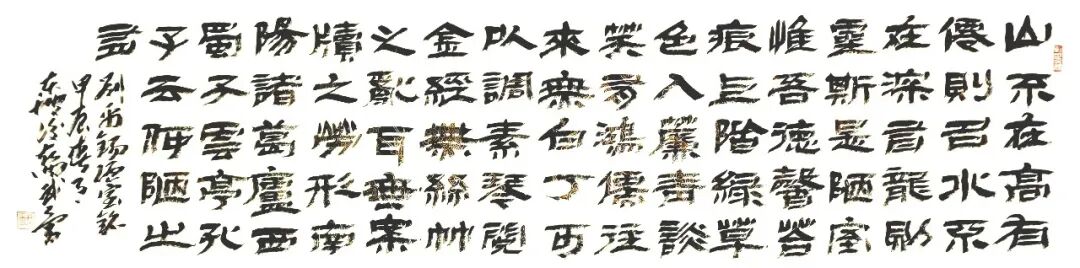 山不在高有
僊則名水不
在深有龍則
靈斯是陋室
惟吾德馨苔
痕上階綠草
色入簾青談
笑有鴻儒往
來無白丁可
以調素琴閱
金經無絲竹
之亂耳無案
牘之勞形南
陽諸葛廬西
蜀子雲亭孔
子云何陋之
有
劉禹錫陋室銘
甲辰春月